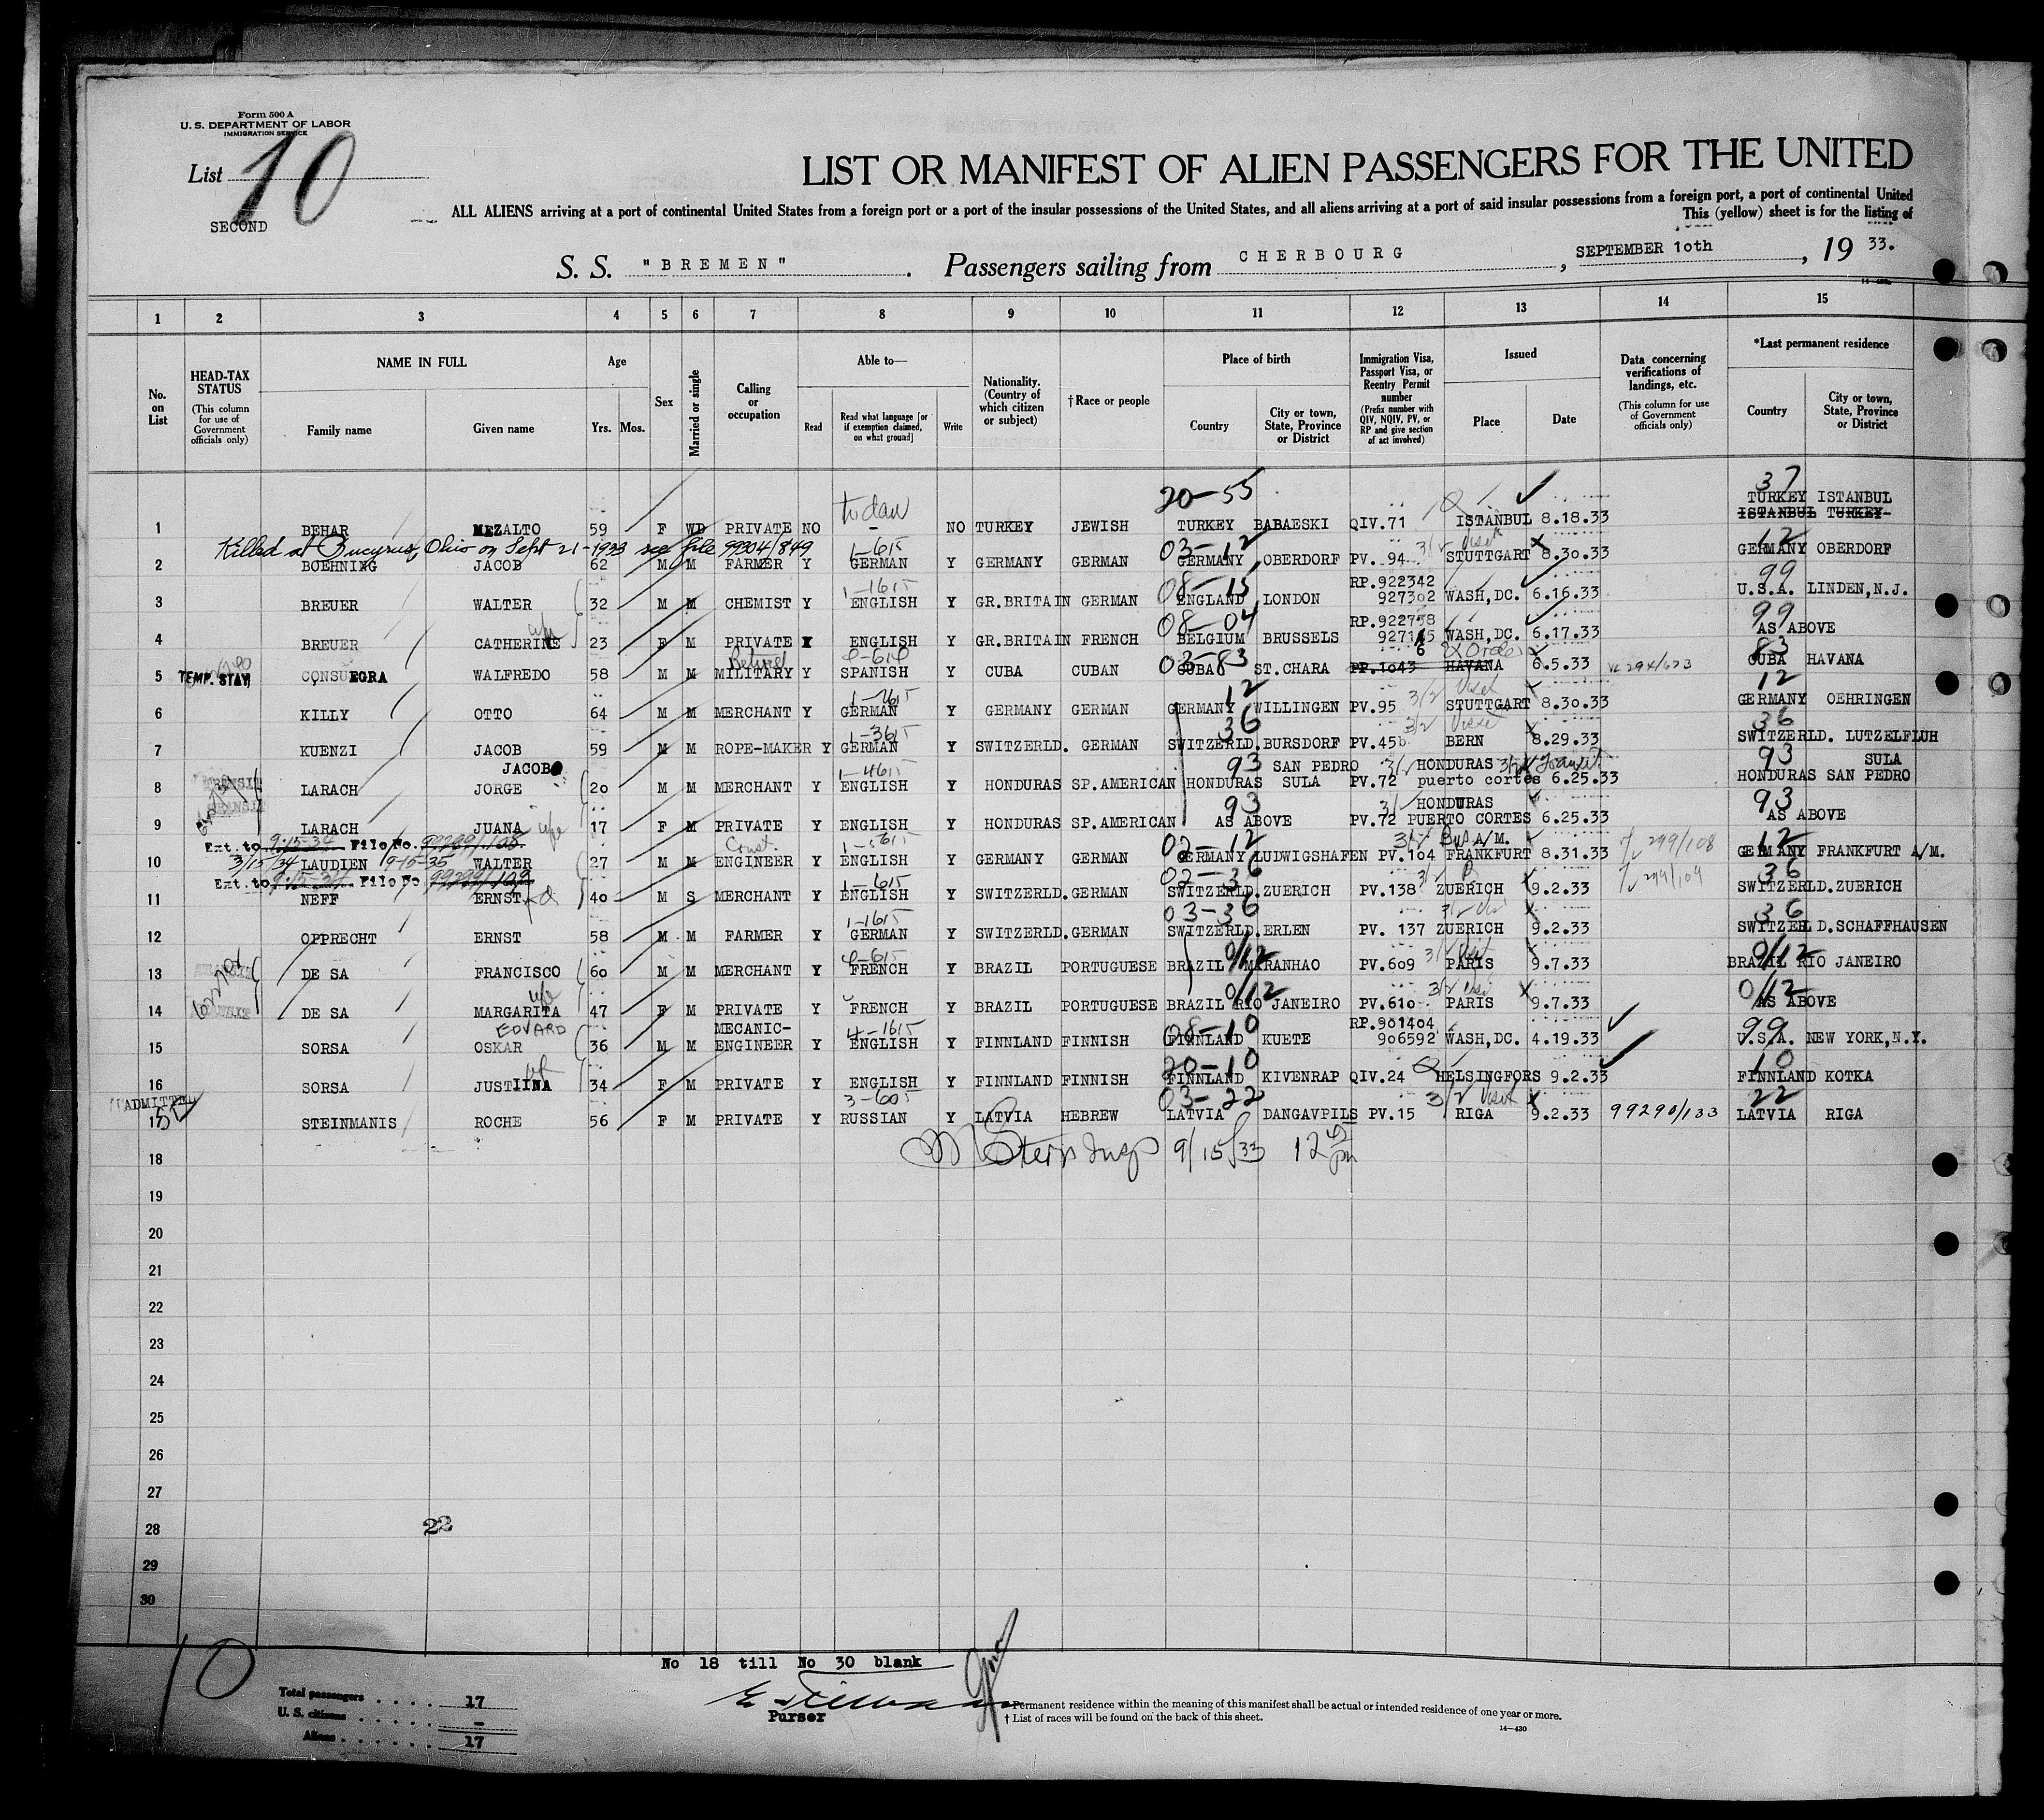 Form 500 A
U. S. DEPARTMENT OF LABOR
IMMIGRATION SERVICE
List 10
SECOND
LIST OR MANIFEST OF ALIEN PASSENGERS FOR THE UNITED
ALL ALIENS arriving at a port of continental United States from a foreign port or a port of the insular possessions of the United States, and all aliens arriving at a port of said insular possessions from a foreign port, a port of continental United
This (yellow) sheet is for the listing of
S. S. "BREMEN". Passengers sailing from CHERBOURG, SEPTEMBER 10th, 19 33.
1 2 3 4 5 6 7 8 9 10 11 12 13 14 15
No. on List
HEAD-TAX STATUS (This column for use of Government officials only)
NAME IN FULL Family name Given name
Age Yrs. Mos.
Sex
Married or single
Calling or occupation
Able to— Read Read what language [or if exemption claimed, on what ground] Write
Nationality. (Country of which citizen or subject)
† Race or people
Place of birth Country City or town, State, Province or District
Immigration Visa, Passport Visa, or Reentry Permit number (Prefix number with QIV, NQIV, PV, or RP and give section of act involved)
Issued Place Date
Data concerning verifications of landings, etc. (This column for use of Government officials only)
*Last permanent residence Country City or town, State, Province or District
20-55 37
TURKEY ISTANBUL
1 BEHAR MEZALTO 59 F WD PRIVATE NO - NO TURKEY JEWISH TURKEY BABAESKI QIV.71 ISTANBUL 8.18.33 ISTANBUL TURKEY
Killed at Bucyrus, Ohio on Sept 21-1933 see file 99304/849
1-615 03-12 3/2 Visit 12
2 BOEHNING JACOB 62 M M FARMER Y GERMAN Y GERMANY GERMAN GERMANY OBERDORF PV. 94 STUTTGART 8.30.33 GERMANY OBERDORF
1-1615 08-15 RP.922342 99
3 BREUER WALTER 32 M M CHEMIST Y ENGLISH Y GR.BRITAIN GERMAN ENGLAND LONDON 927302 WASH,DC. 6.16.33 U.S.A. LINDEN,N.J.
wife 08-04 RP.922758 99
4 BREUER CATHERINE 23 F M PRIVATE Y ENGLISH Y GR.BRITAIN FRENCH BELGIUM BRUSSELS 927145 WASH,DC. 6.17.33 AS ABOVE
Retired 03-83 6 83
5 TEMP. STAY CONSUEGRA WALFREDO 58 M M MILITARY Y SPANISH Y CUBA CUBAN CUBA ST.CHARA PP.1043 HAVANA 6.5.33 CUBA HAVANA
12 3/2 Visit 12
6 KILLY OTTO 64 M M MERCHANT Y GERMAN Y GERMANY GERMAN GERMANY WILLINGEN PV.95 STUTTGART 8.30.33 GERMANY OEHRINGEN
1-3615 36 3/2 Visit 36
7 KUENZI JACOB 59 M M ROPE-MAKER Y GERMAN Y SWITZERLD. GERMAN SWITZERLD. BURSDORF PV.45 BERN 8.29.33 SWITZERLD. LUTZELFLUH
JACOBO 1-4615 93 SAN PEDRO HONDURAS 3/2 Transit 93 SULA
8 LARACH JORGE 20 M M MERCHANT Y ENGLISH Y HONDURAS SP.AMERICAN HONDURAS SULA PV.72 puerto cortes 6.25.33 HONDURAS SAN PEDRO
wife 93 HONDURAS 93
9 LARACH JUANA 17 F M PRIVATE Y ENGLISH Y HONDURAS SP.AMERICAN AS ABOVE PV.72 PUERTO CORTES 6.25.33 AS ABOVE
Ext. to 9-15-34 File No. 99299/108
Const. 02-12 3/2 Bus A/M. 12
10 3/15/34 LAUDIEN 9-15-35 WALTER 27 M M ENGINEER Y ENGLISH Y GERMANY GERMAN GERMANY LUDWIGSHAFEN PV.104 FRANKFURT 8.31.33 299/108 GERMANY FRANKFURT A/M.
Ext. to 9-15-34 File No 99299/109
1-615 02-36 3/2 B 36
11 NEFF ERNST 40 M S MERCHANT Y ENGLISH Y SWITZERLD. GERMAN SWITZERLD. ZUERICH PV.138 ZUERICH 9.2.33 299/109 SWITZERLD. ZUERICH
1-1615 03-36 36
12 OPPRECHT ERNST 58 M M FARMER Y GERMAN Y SWITZERLD. GERMAN SWITZERLD. ERLEN PV. 137 ZUERICH 9.2.33 SWITZERLD. SCHAFFHAUSEN
0/12 0/12
13 DE SA FRANCISCO 60 M M MERCHANT Y FRENCH Y BRAZIL PORTUGUESE BRAZIL MARANHAO PV.609 PARIS 9.7.33 BRAZIL RIO JANEIRO
wife 0/12 0/12
14 DE SA MARGARITA 47 F M PRIVATE Y FRENCH Y BRAZIL PORTUGUESE BRAZIL RIO JANEIRO PV.610 PARIS 9.7.33 AS ABOVE
EDVARD MECANIC- 4-1615 08-10 RP.901404 99
15 SORSA OSKAR 36 M M ENGINEER Y ENGLISH Y FINNLAND FINNISH FINNLAND KUETE 906592 WASH,DC. 4.19.33 U.S.A. NEW YORK,N.Y.
20-10 10
16 SORSA JUSTIINA 34 F M PRIVATE Y ENGLISH Y FINNLAND FINNISH FINNLAND KIVENRAP QIV.24 HELSINGFORS 9.2.33 FINNLAND KOTKA
ADMITTED 3-605 03-22 3/2 Visit 22
17 STEINMANIS ROCHE 56 F M PRIVATE Y RUSSIAN Y LATVIA HEBREW LATVIA DANGAVPILS PV.15 RIGA 9.2.33 99290/133 LATVIA RIGA
18 9/15/33 12 pm
19
20
21
22
23
24
25
26
27
28 22
29
30
10
No 18 till No 30 blank
Purser
Total passengers .... 17
U. S. citizens ..... -
Aliens ...... 17
* Permanent residence within the meaning of this manifest shall be actual or intended residence of one year or more.
† List of races will be found on the back of this sheet.
14—430